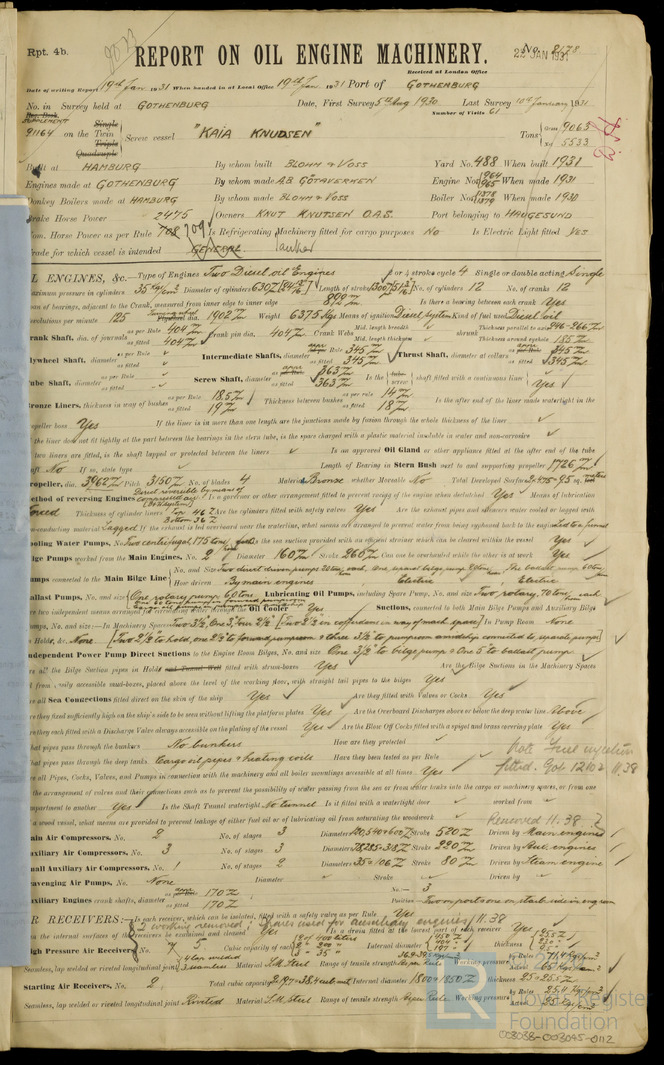 Rpt. 4b.
REPORT ON OIL ENGINE MACHINERY.
No. 2178
22 JAN 1931
Received at London Office
Date of writing Report 19th Jan 1931 When handed in at Local Office 19th Jan 1931 Port of GOTHENBURG
No. in Survey held at GOTHENBURG Date, First Survey 5th Aug 1930 Last Survey 10th January 1931
Number of Visits 61
SUPPLEMENT
91164 on the Single Twin Triple Quadruple Screw vessel "KAIA KNUDSEN" Tons Gross 9063 Net 5533
Built at HAMBURG By whom built BLOHM & VOSS Yard No. 488 When built 1931
Engines made at GOTHENBURG By whom made A.B. GÖTAVERKEN Engine No. 964 965 When made 1931
Donkey Boilers made at HAMBURG By whom made BLOHM & VOSS Boiler No. 1378 1379 When made 1930
Brake Horse Power 2475 Owners KNUT KNUTSEN O.A.S. Port belonging to HAUGESUND
Nom. Horse Power as per Rule 708 709 Is Refrigerating Machinery fitted for cargo purposes No Is Electric Light fitted Yes
Trade for which vessel is intended GENERAL Tanker
OIL ENGINES, &c. Type of Engines Two Diesel oil Engines 2 or 4 stroke cycle 4 Single or double acting Single
Maximum pressure in cylinders 35 kg/cm² Diameter of cylinders 630 Length of stroke 1300 No. of cylinders 12 No. of cranks 12
Span of bearings, adjacent to the Crank, measured from inner edge to inner edge Is there a bearing between each crank Yes
Revolutions per minute 125 Flywheel dia. 1902 Weight 6375 Kgs Means of ignition Diesel system Kind of fuel used Diesel oil
Crank Shaft, dia. of journals as per Rule 404 as fitted 404 Crank pin dia. 404 Crank Webs Mid. length breadth Mid. length thickness shrunk Thickness parallel to axis 246-266 Thickness around eyehole 185
Flywheel Shaft, diameter as per Rule as fitted Intermediate Shafts, diameter as per Rule 345 as fitted 345 Thrust Shaft, diameter at collars 345 as fitted 345
Tube Shaft, diameter as per Rule as fitted Screw Shaft, diameter 363 as fitted 363 Is the shaft fitted with a continuous liner Yes
Bronze Liners, thickness in way of bushes as per Rule 18.5 as fitted 19 Thickness between bushes as per rule 14 as fitted 18 Is the after end of the liner made watertight in the
propeller boss Yes If the liner is in more than one length are the junctions made by fusion through the whole thickness of the liner
If the liner does not fit tightly at the part between the bearings in the stern tube, is the space charged with a plastic material insoluble in water and non-corrosive
If two liners are fitted, is the shaft lapped or protected between the liners Is an approved Oil Gland or other appliance fitted at the after end of the tube
shaft No If so, state type Length of Bearing in Stern Bush next to and supporting propeller 1726
Propeller, dia. 3962 Pitch 3150 No. of blades 4 Material Bronze whether Moveable No Total Developed Surface
Method of reversing Engines Direct reversible by means of compressed air Is a governor or other arrangement fitted to prevent racing of the engine when declutched Yes Means of lubrication
Forced Thickness of cylinder liners Top 46 Bottom 36 Are the cylinders fitted with safety valves Yes Are the exhaust pipes and silencers water cooled or lagged with
non-conducting material Lagged If the exhaust is led overboard near the waterline, what means are arranged to prevent water being syphoned back to the engine Led to a funnel
Cooling Water Pumps, No. Two centrifugal, 175 tons Is the sea suction provided with an efficient strainer which can be cleared within the vessel Yes
Bilge Pumps worked from the Main Engines, No. 2 Diameter 160 Stroke 260 Can one be overhauled while the other is at work Yes
Pumps connected to the Main Bilge Line No. and Size Two direct driven pumps
How driven By main engines Electric Electric
Ballast Pumps, No. and size One rotary pump 60 tons Lubricating Oil Pumps, including Spare Pump, No. and size Two, rotary, 70 tons each
Are two independent means arranged for circulating water through the Oil Cooler Yes Suctions, connected to both Main Bilge Pumps and Auxiliary Bilge
Pumps, No. and size:—In Machinery Spaces In Pump Room None
In Holds, &c. None
Independent Power Pump Direct Suctions to the Engine Room Bilges, No. and size One 3½" to bilge pump & One 5" to ballast pump
Are all the Bilge Suction pipes in Holds and Tunnel Well fitted with strum-boxes Yes Are the Bilge Suctions in the Machinery Spaces
led from easily accessible mud-boxes, placed above the level of the working floor, with straight tail pipes to the bilges Yes
Are all Sea Connections fitted direct on the skin of the ship Yes Are they fitted with Valves or Cocks Yes
Are they fixed sufficiently high on the ship's side to be seen without lifting the platform plates Yes Are the Overboard Discharges above or below the deep water line Above
Are they each fitted with a Discharge Valve always accessible on the plating of the vessel Yes Are the Blow Off Cocks fitted with a spigot and brass covering plate Yes
What pipes pass through the bunkers No bunkers How are they protected
What pipes pass through the deep tanks Cargo oil pipes & heating coils Have they been tested as per Rule
Are all Pipes, Cocks, Valves, and Pumps in connection with the machinery and all boiler mountings accessible at all times Yes
Is the arrangement of valves and their connections such as to prevent the possibility of water passing from the sea or from water tanks into the cargo or machinery spaces, or from one
compartment to another Yes Is the Shaft Tunnel watertight No tunnel Is it fitted with a watertight door worked from
If a wood vessel, what means are provided to prevent leakage of either fuel oil or of lubricating oil from saturating the woodwork
Note Fuel injection fitted. Gob 12102 11.38
Removed 11.38
Main Air Compressors, No. 2 No. of stages 3 Diameters Stroke 520 Driven by Main engines
Auxiliary Air Compressors, No. 3 No. of stages 3 Diameters Stroke 220 Driven by Aux. engines
Small Auxiliary Air Compressors, No. 1 No. of stages 2 Diameters 35 & 106 Stroke 80 Driven by Steam engine
Scavenging Air Pumps, No. None Diameter Stroke Driven by
Auxiliary Engines crank shafts, diameter as per Rule 170 as fitted 170 No. 3
Position Two on port one on starb. side in eng. room
AIR RECEIVERS:— Is each receiver, which can be isolated, fitted with a safety valve as per Rule Yes
2 working removed, spares used for auxiliary engines 11.38
Can the internal surfaces of the receivers be examined and cleaned Yes Is a drain fitted at the lowest part of each receiver Yes
High Pressure Air Receivers, No. 7 5 Cubic capacity of each Internal diameter thickness
Seamless, lap welded or riveted longitudinal joint Material S.M. Steel Range of tensile strength Working pressure
Starting Air Receivers, No. 2 Total cubic capacity Internal diameter 1800 & 1850 thickness 25 & 25.5
Seamless, lap welded or riveted longitudinal joint Riveted Material S.M. Steel Range of tensile strength As per Rule Working pressure by Rules Actual
LR
Lloyd's Register
Foundation
003038-003045-0112